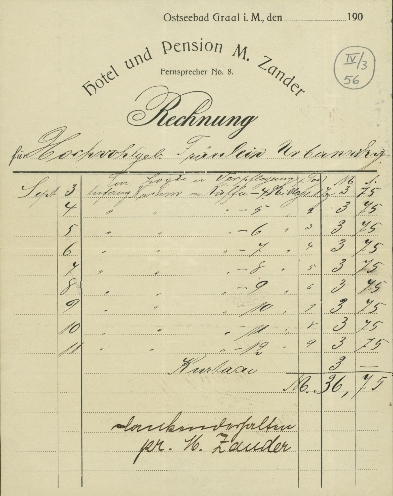 Ostseebad Graal i. M., den 190
IV/3
56
Hotel und Pension M. Zander
Fernsprecher No. 8.
Rechnung
für Hochwohlgeb. Fräulein Urbanitzky
Sept. 3 3 75
4 " " " - 5 " 2 3 75
5 " " " - 6 " 3 3 75
6 " " " - 7 " 4 3 75
7 " " " - 8 " 5 3 75
8 " " " - 9 " 6 3 75
9 " " " - 10 " 7 3 75
10 " " " - 11 " 8 3 75
11 " " " - 12 " 9 3 75
Kurtaxe 3 —
M. 36,75
dankend erhalten
pr. M. Zander